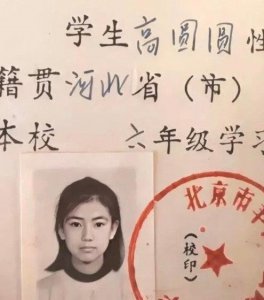 学生高圆圆性
籍贯河北省（市）
本校 六年级学习
北京市
（校印）